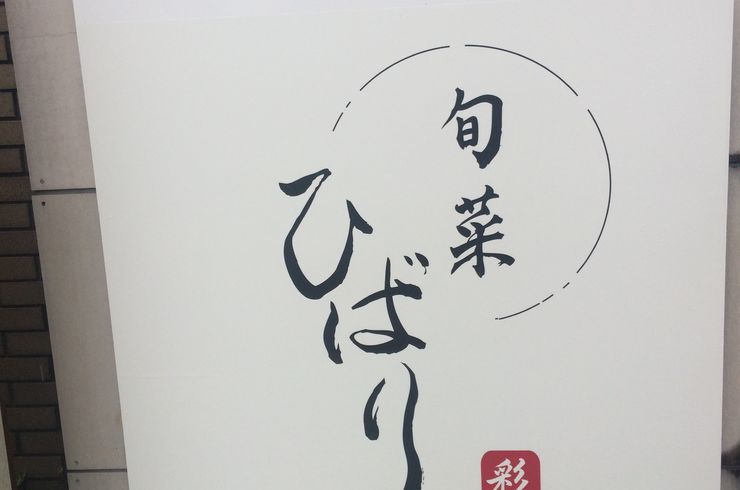 旬菜
ひばり
彩